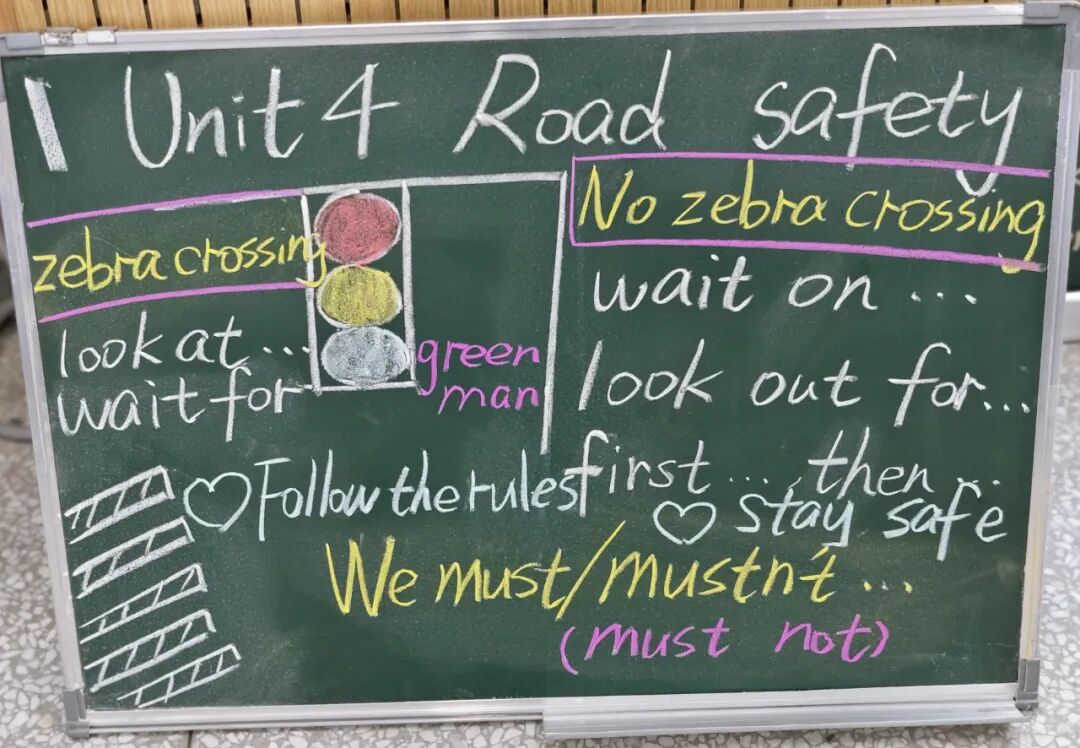 Unit 4 Road safety
zebra crossing
look at ...
wait for
green
man
No zebra crossing
wait on ...
look out for...
first ... then ...
♡ Follow the rules
♡ stay safe
We must/mustn't ...
(must not)